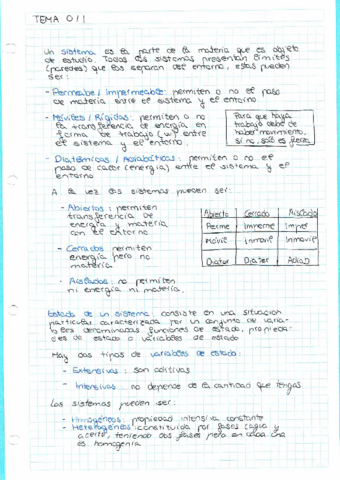 TEMA 0 / 1
Un sistema es la parte de la materia que es objeto
de estudio. Todos los sistemas presentan límites
(paredes) que los separan del entorno, estas pueden
ser:
- Permeable / Impermeable: permiten o no el paso
de materia entre el sistema y el entorno
- Móviles / Rígidas: permiten o no
la transferencia de energía en
forma de trabajo (w) entre
el sistema y el entorno.
Para que haya
trabajo debe de
haber movimiento,
si no, solo es fuerza
- Diatérmicas / Adiabáticas: permiten o no el
paso de calor (energía) entre el sistema y el
entorno
A la vez los sistemas pueden ser:
- Abiertos: permiten
transferencia de
energía y materia
con el entorno
- Cerrados permiten
energía pero no
materia.
- Aislados: no permiten
ni energía ni materia.
Abierto Cerrado Aislado
Perme Imperme Imper
Móvil Inmovil Inmovil
Diater Diater Adiab
Estado de un sistema, consiste en una situación
particular caracterizada por un conjunto de varia-
bles denominadas funciones de estado, propieda-
des de estado o variables de estado
Hay dos tipos de variables de estado:
- Extensivas: son aditivas
- Intensivas: no depende de la cantidad que tengas
Los sistemas pueden ser:
- Homogéneos: propiedad intensiva constante
- Heterogéneos: constituida por fases (agua y
aceite, teniendo dos fases pero en cada una
es homogenia